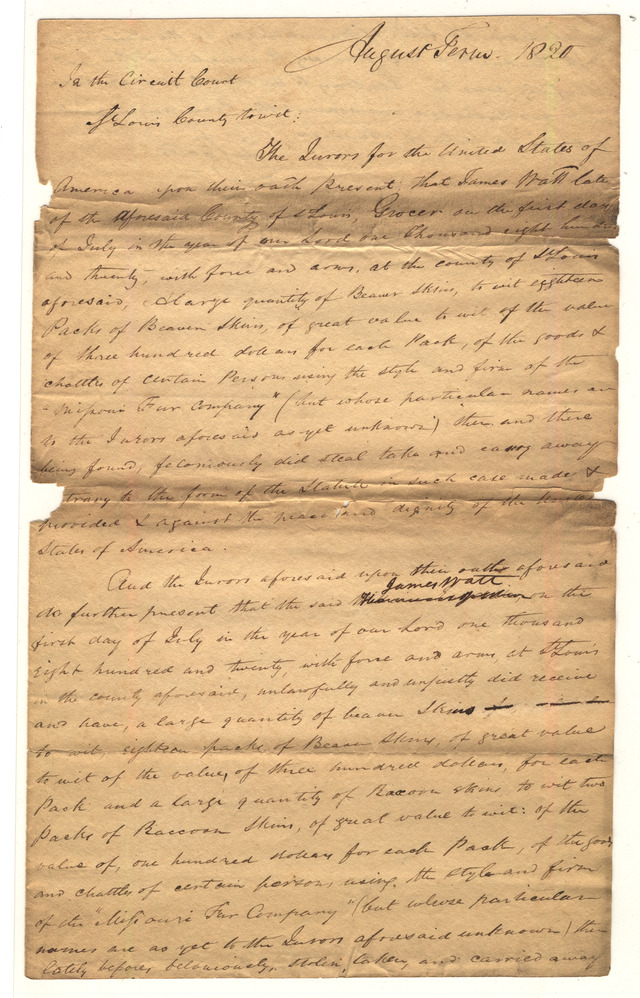 August Term. 1820
In the Circuit Court
St Louis County to wit:
The Jurors for the United States of
America upon their oath present, that James Watt late
of the aforesaid County of St Louis, Grocer on the first day
of July in the year of our Lord one Thousand eight hund
and twenty, with force and arms, at the county of St Louis
aforesaid, A large quantity of Beaver Skins, to wit eighteen
Packs of Beaver Skins, of great value to wit of the value
of three hundred dollars for each Pack, of the goods &
chattles of certain Persons using the style and firm of the
"Missouri Fur Company" (but whose particular names are
to the Jurors aforesaid as yet unknown) then and there
being found, feloniously did steal take and carry away
trary to the form of the Statute in such case made &
provided & against the peace and dignity of the United
States of America.
And the Jurors aforesaid upon their oaths aforesaid
do further present that the said James Watt on the
first day of July in the year of our Lord one thousand
eight hundred and twenty, with force and arms, at St Louis
in the county aforesaid, unlawfully and unjustly did receive
and have, a large quantity of beaver Skins
to wit, eighteen packs of Beaver Skins, of great value
to wit of the value, of three hundred dollars, for each
Pack and a large quantity of Racoon skins, to wit two
Packs of Raccoon Skins, of great value to wit: of the
value of, one hundred dollars for each Pack, of the goods
and chattles of certain persons, using, the style and firm
of the "Missouri Fur Company" (but whose particular
names are as yet to the Jurors aforesaid unknown) then
lately before, feloniously, stolen, taken, and carried away